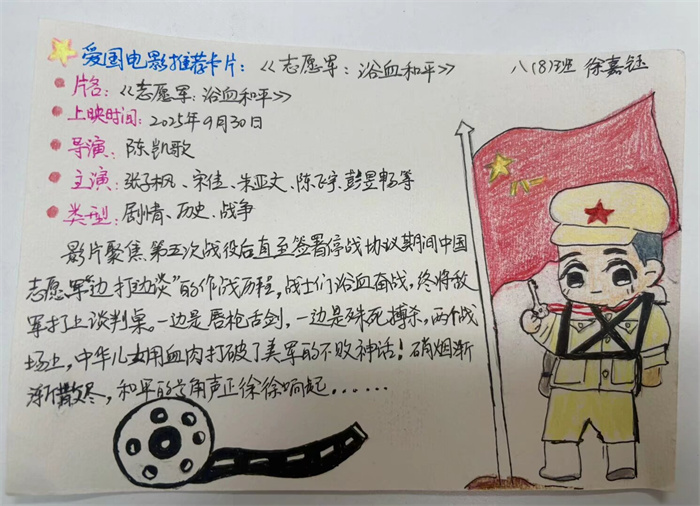 爱国电影推荐卡片：《志愿军：浴血和平》
八(8)班 徐嘉钰
片名：《志愿军：浴血和平》
上映时间：2025年9月30日
导演：陈凯歌
主演：张子枫、宋佳、朱亚文、陈飞宇、彭昱畅等
类型：剧情、历史、战争
影片聚焦第五次战役后直至签署停战协议期间中国
志愿军“边打边谈”的作战历程，战士们浴血奋战，终将敌
军打上谈判桌。一边是唇枪舌剑，一边是殊死搏杀，两个战
场上，中华儿女用血肉打破了美军的不败神话！硝烟渐
渐散尽，和平的号角声正徐徐响起......
八一